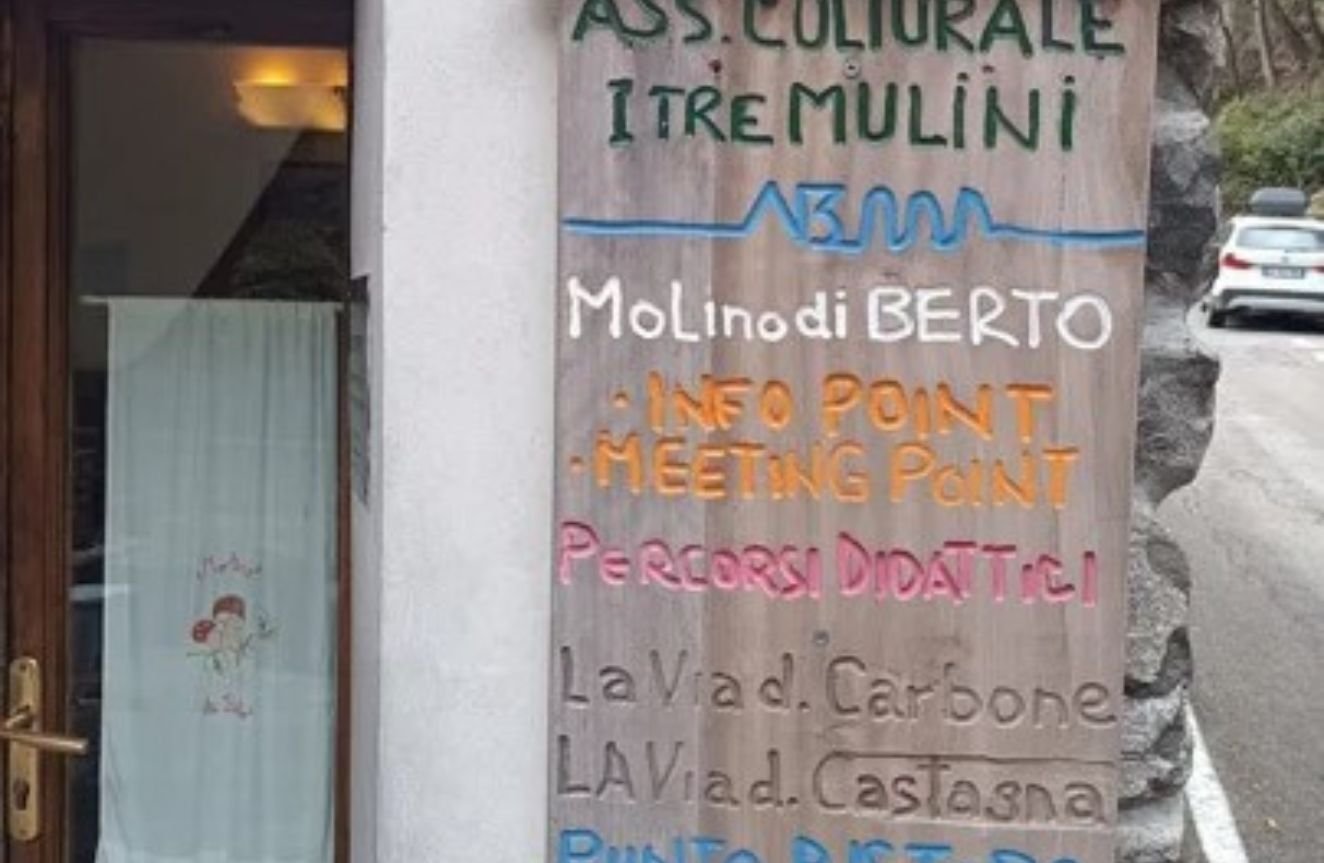 ASS. CULTURALE
I TRE MULINI
MoLino di BERTO
· INFO POINT
· MEETING POINT
PERCORSI DIDATTICI
La Via d. Carbone
LA Via d. Castagna
PUNTO RISTORO